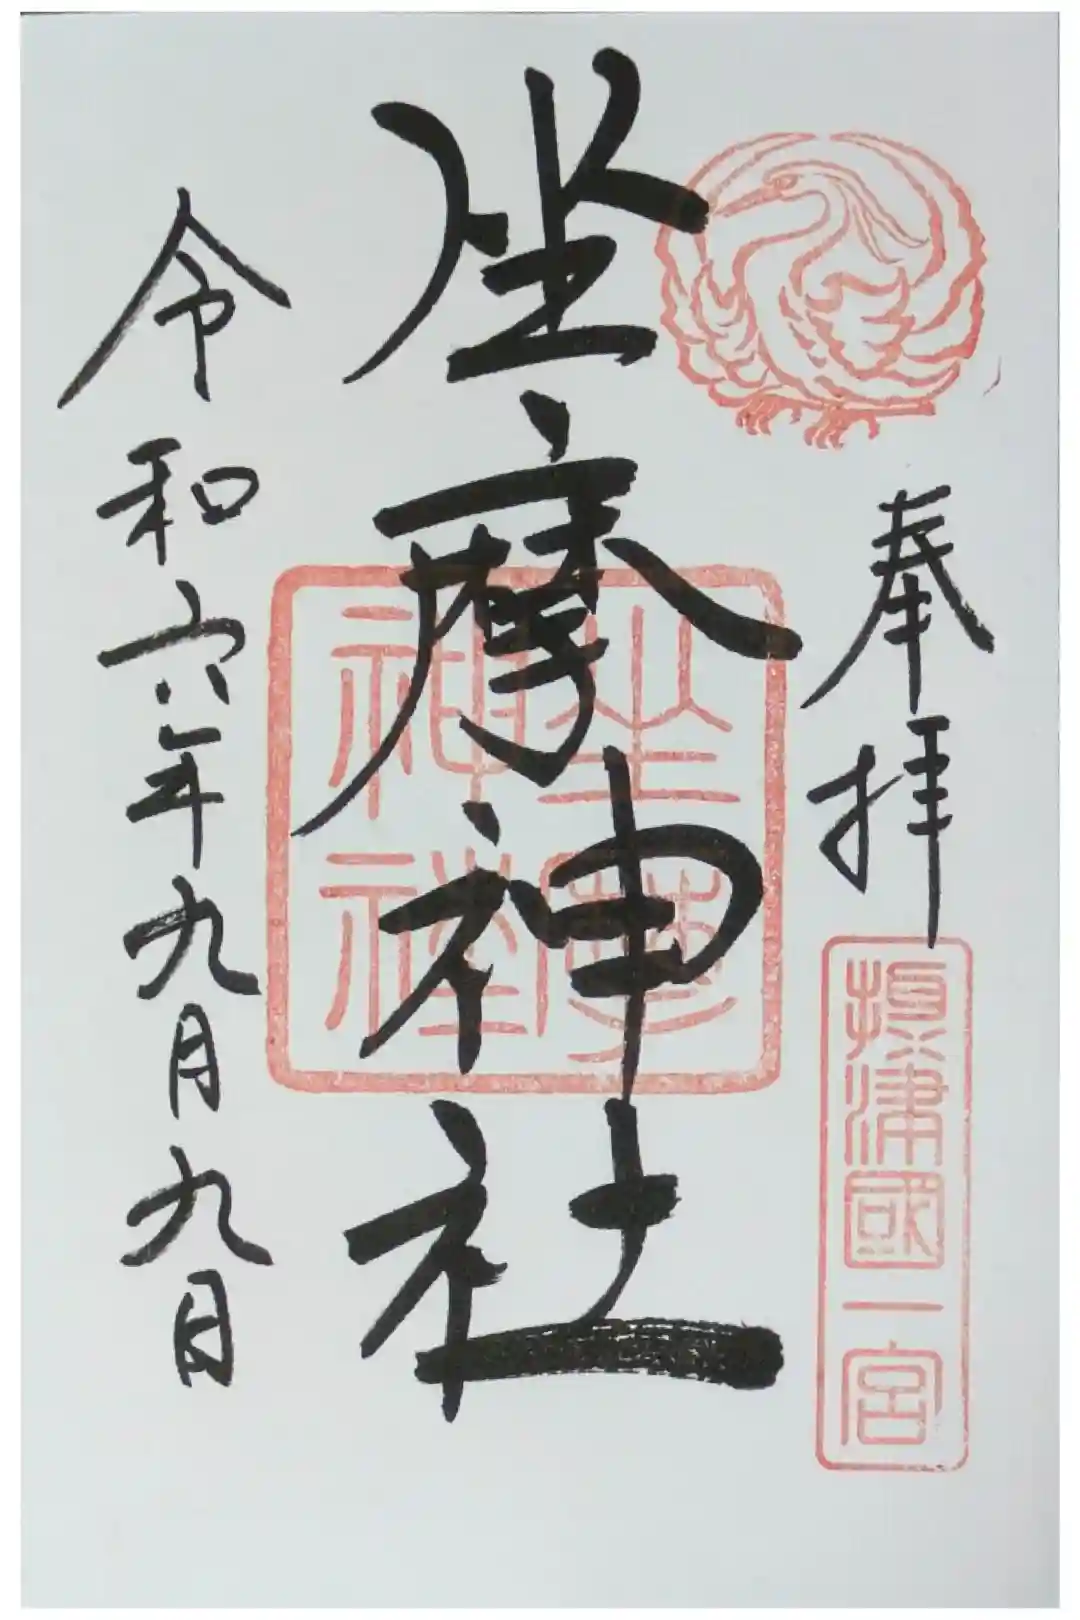 奉拝
摂津國一宮
坐摩神社
坐摩
神社
令和六年九月九日